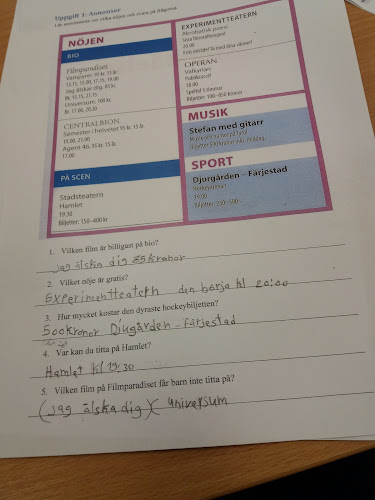 Uppgift 1: Annonser
Läs annonserna om olika nöjen och svara på frågorna.
NÖJEN
BIO
Filmparadiset
Vampyren 95 kr. 15 år.
13.15, 15.00, 17.15, 19.00
Jag älskar dig. 85 kr.
Bt. 15.15, 21.15
Universum. 100 kr.
Bt. 17.00, 20.30
CENTRALBION
Semester i helvetet 95 kr. 15 år.
19.00, 21.00
Agent 46. 95 kr. 15 år.
17.00
PÅ SCEN
Stadsteatern
Hamlet
19.30
Biljetter: 150–400 kr
EXPERIMENTTEATERN
Akrobatisk poesi
Sista föreställningen!
20.00
Fritt inträde! Ta med dina vänner!
OPERAN
Valkyrian
Publiksuccé!
18.00
Speltid 5 timmar
Biljetter: 100–850 kronor
MUSIK
Stefan med gitarr
SPORT
Djurgården – Färjestad
Hockeystadion
19.00
Biljetter: 250–500
1. Vilken film är billigast på bio?
jag älska dig 85 kronor
2. Vilket nöje är gratis?
Experimentteatern den börja kl 20:00
3. Hur mycket kostar den dyraste hockeybiljetten?
500 kronor Djugården – färjestad
4. Var kan du titta på Hamlet?
Hamlat kl 19:30
5. Vilken film på Filmparadiset får barn inte titta på?
(jag älska dig) ( universum